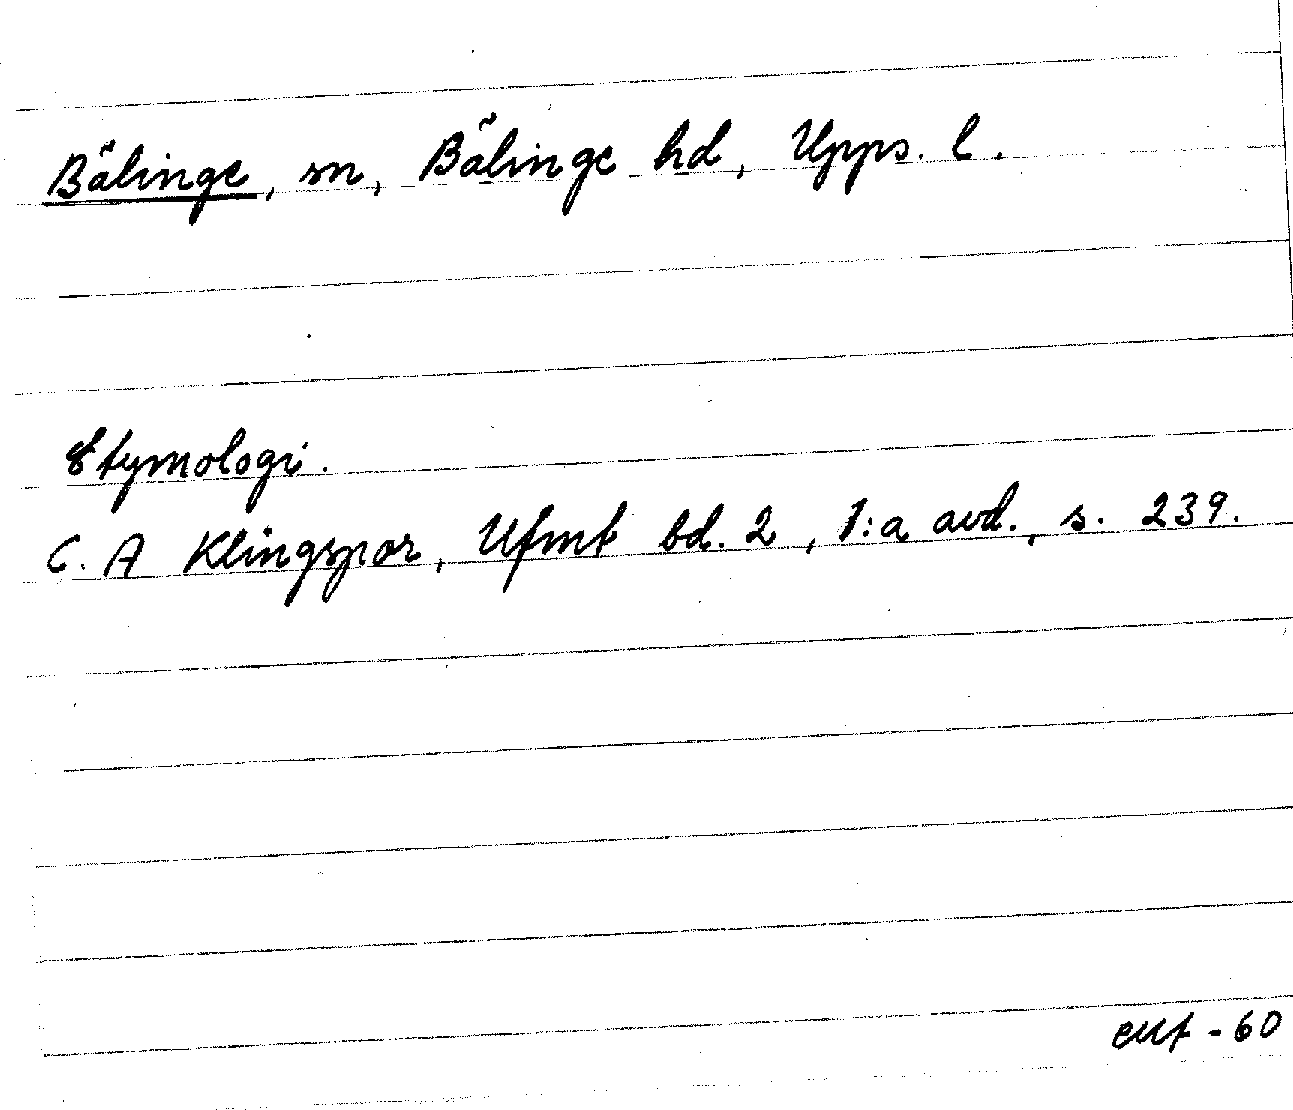 Bälinge, sn, Bälinge hd, Upps. l.
Etymologi.
C. A Klingspor, Ufmt bd. 2, 1:a avd., s. 239.
-60